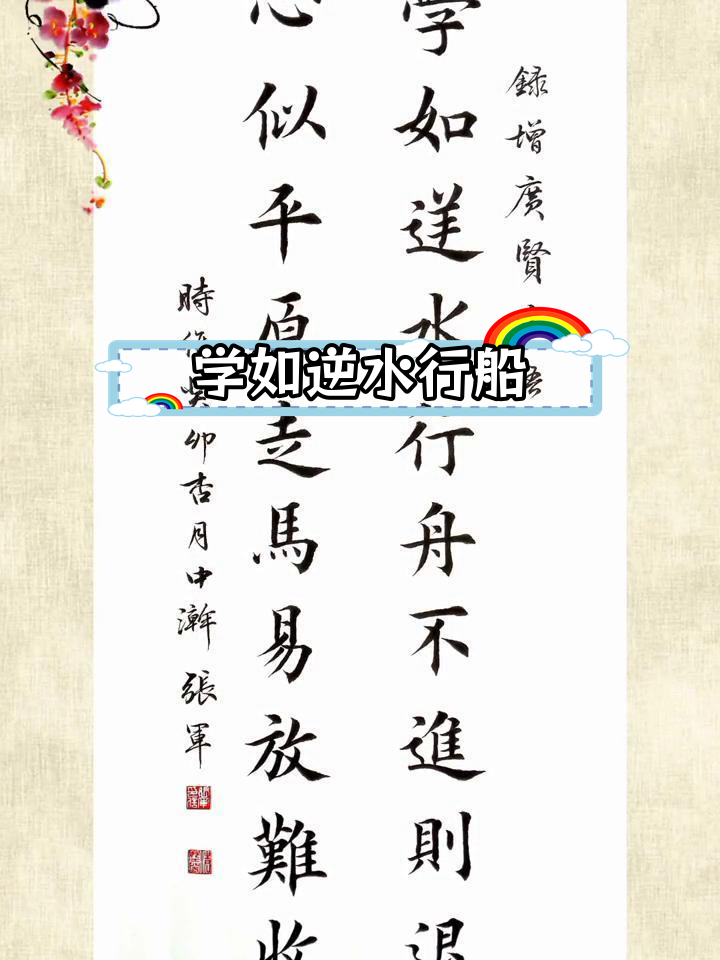 学如逆水行船
録增廣賢
學如逆水行舟不進則退
心似平原走馬易放難收
時癸卯杏月中澣張軍